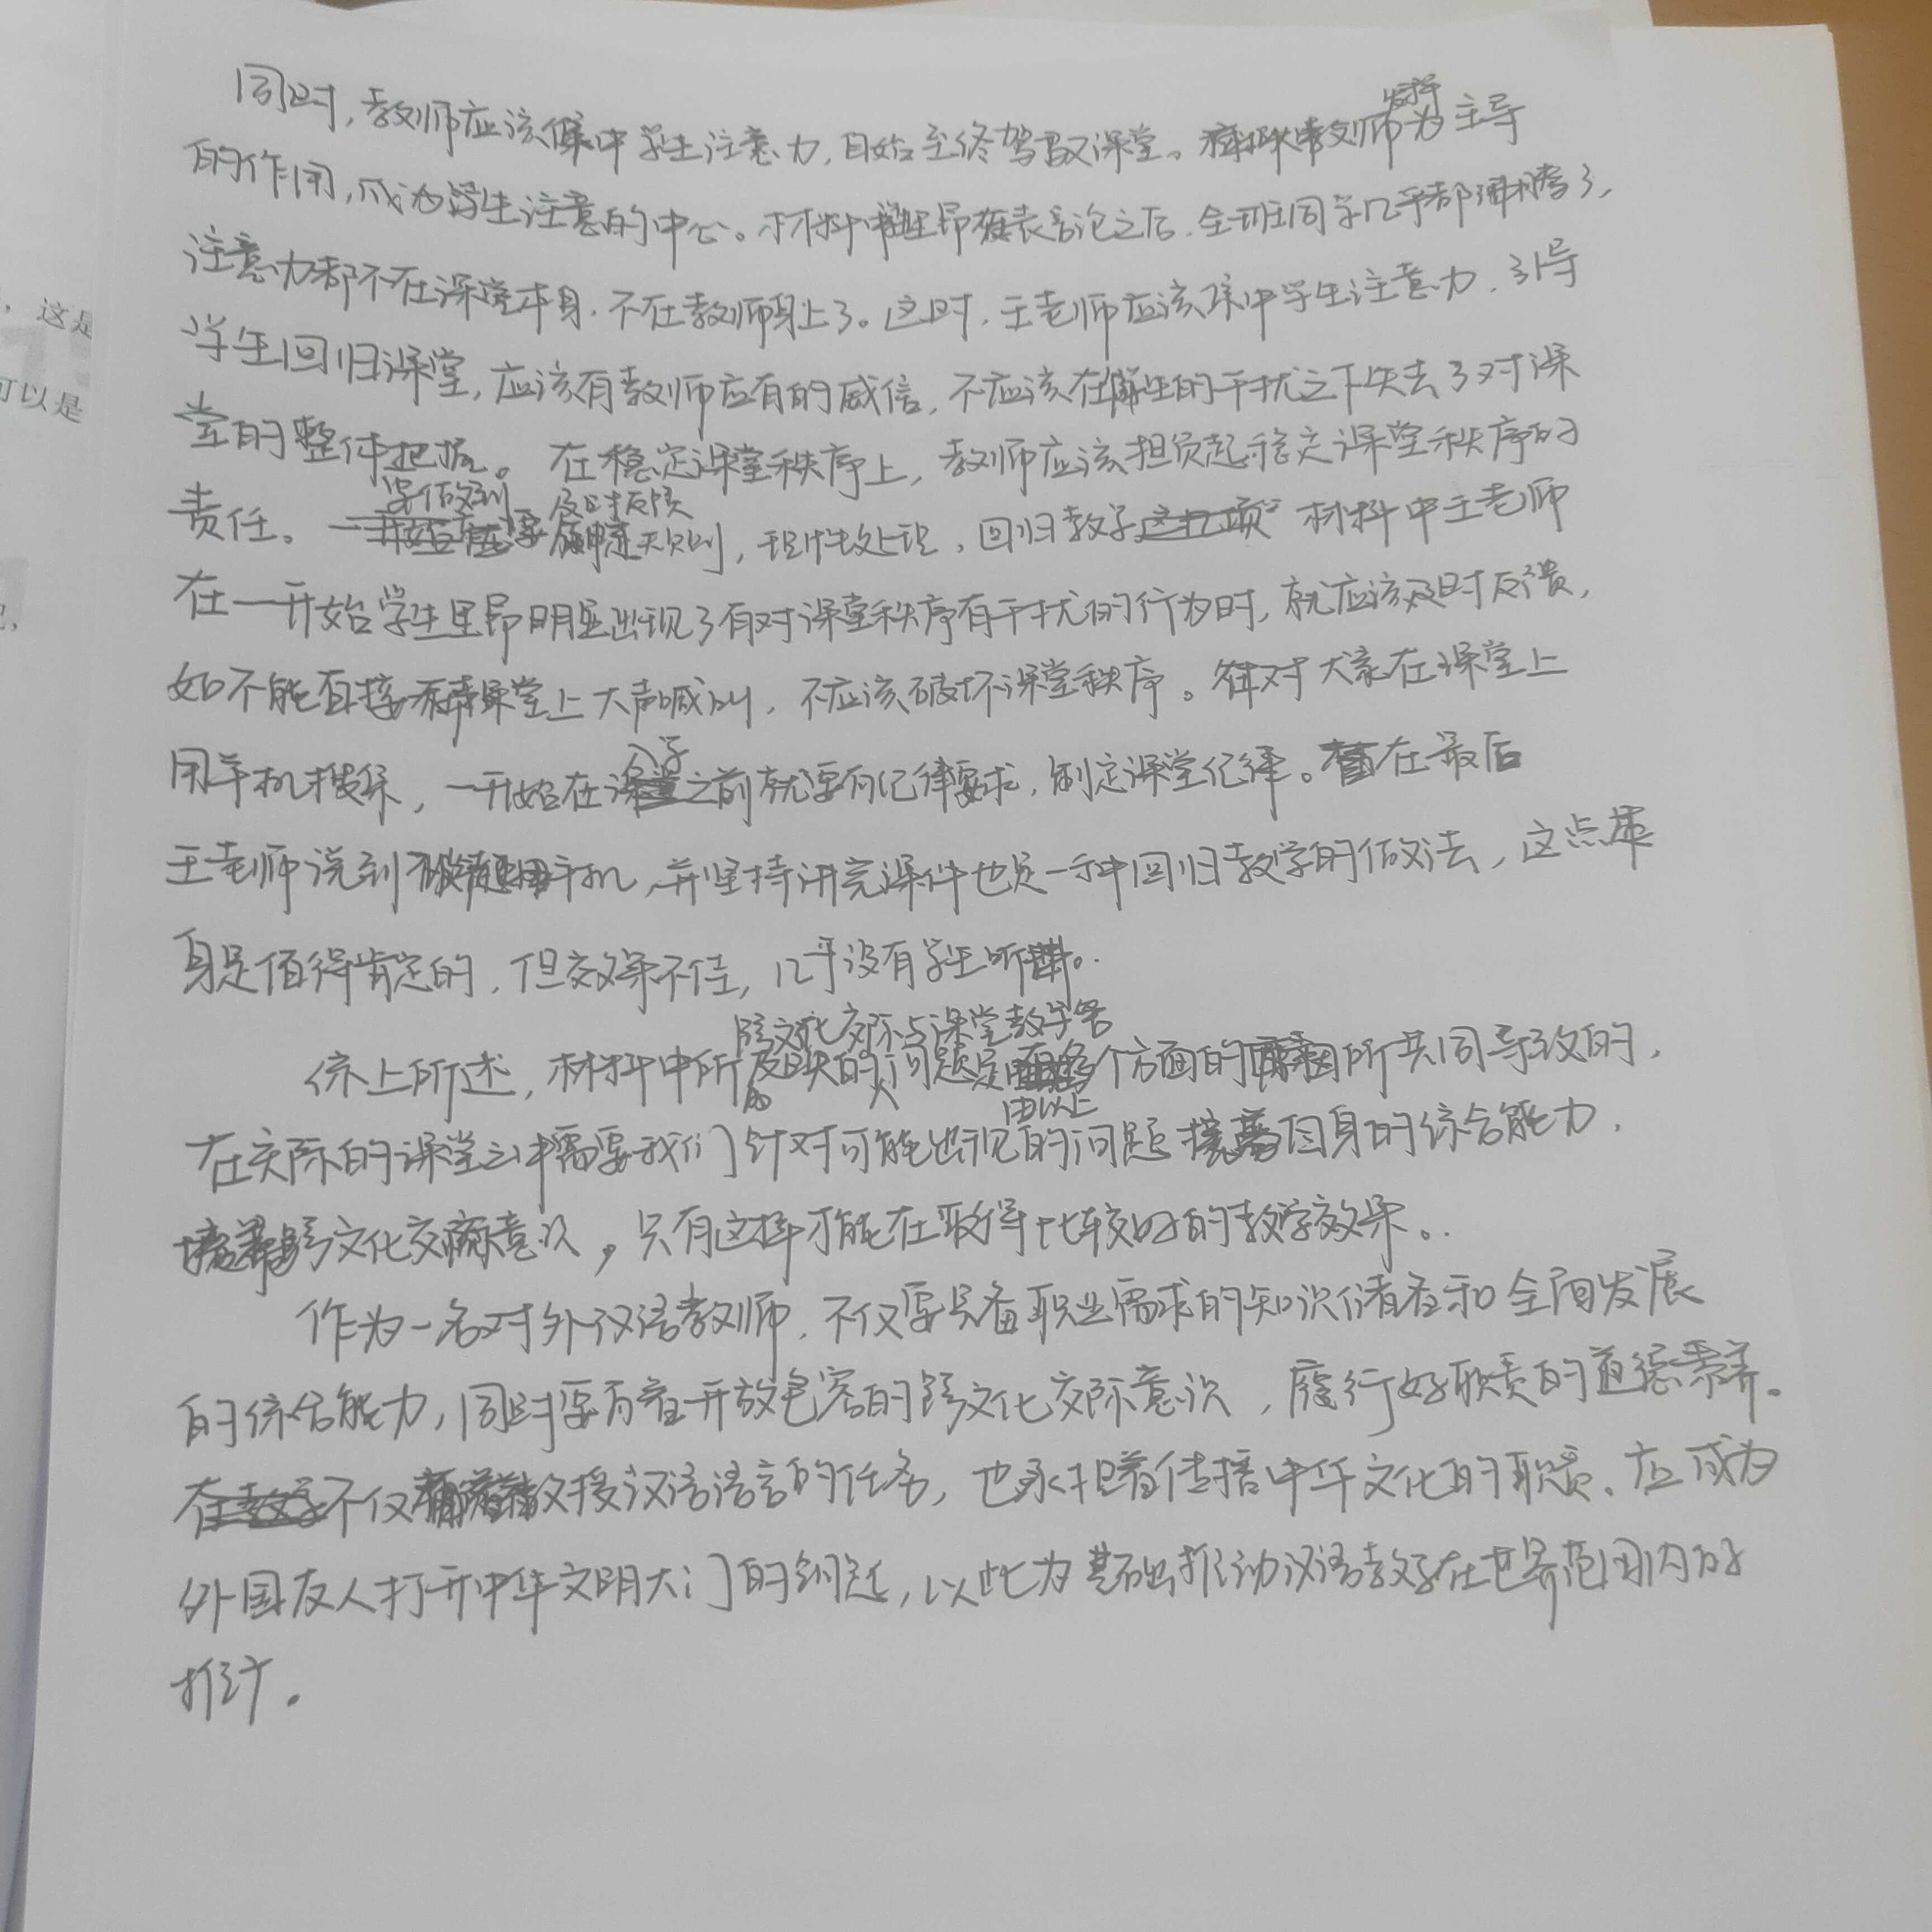 ，这是
可以是
同时，教师应该集中学生注意力，自始至终驾驭课堂。教师发挥为主导
的作用，成为学生注意的中心。材料中里昂发表言论之后，全班同学几乎都沸腾了，
注意力都不在课堂本身，不在教师身上了。这时，王老师应该集中学生注意力，引导
学生回归课堂，应该有教师应有的威信，不应该在学生的干扰之下失去了对课
堂的整体把握。在稳定课堂秩序上，教师应该担负起稳定课堂秩序的
责任。要做到及时反馈，理性处理，回归教学 材料中王老师
在一开始学生里昂明显出现了有对课堂秩序有干扰的行为时，就应该及时反馈，
如不能直接在课堂上大声喊叫，不应该破坏课堂秩序。针对大家在课堂上
用手机搜索，一开始在入学之前就要有纪律要求，制定课堂纪律。在最后
王老师说到不能使用手机，并坚持讲完课件也是一种回归教学的做法，这点本
身是值得肯定的，但效果不佳，几乎没有学生听讲。
跨文化交际与课堂教学等
综上所述，材料中所反映的问题是由以上个方面的原因所共同导致的，
在实际的课堂之中需要我们针对可能出现的问题提高自身的综合能力，
培养跨文化交际意识，只有这样才能在取得比较好的教学效果。
作为一名对外汉语教师，不仅要具备职业需求的知识储备和全面发展
的综合能力，同时要有着开放包容的跨文化交际意识，履行好职责的道德素养。
不仅有着教授汉语语言的任务，也承担着传播中华文化的职责，应成为
外国友人打开中华文明大门的钥匙，以此为基础推动汉语教学在世界范围内的
推广。